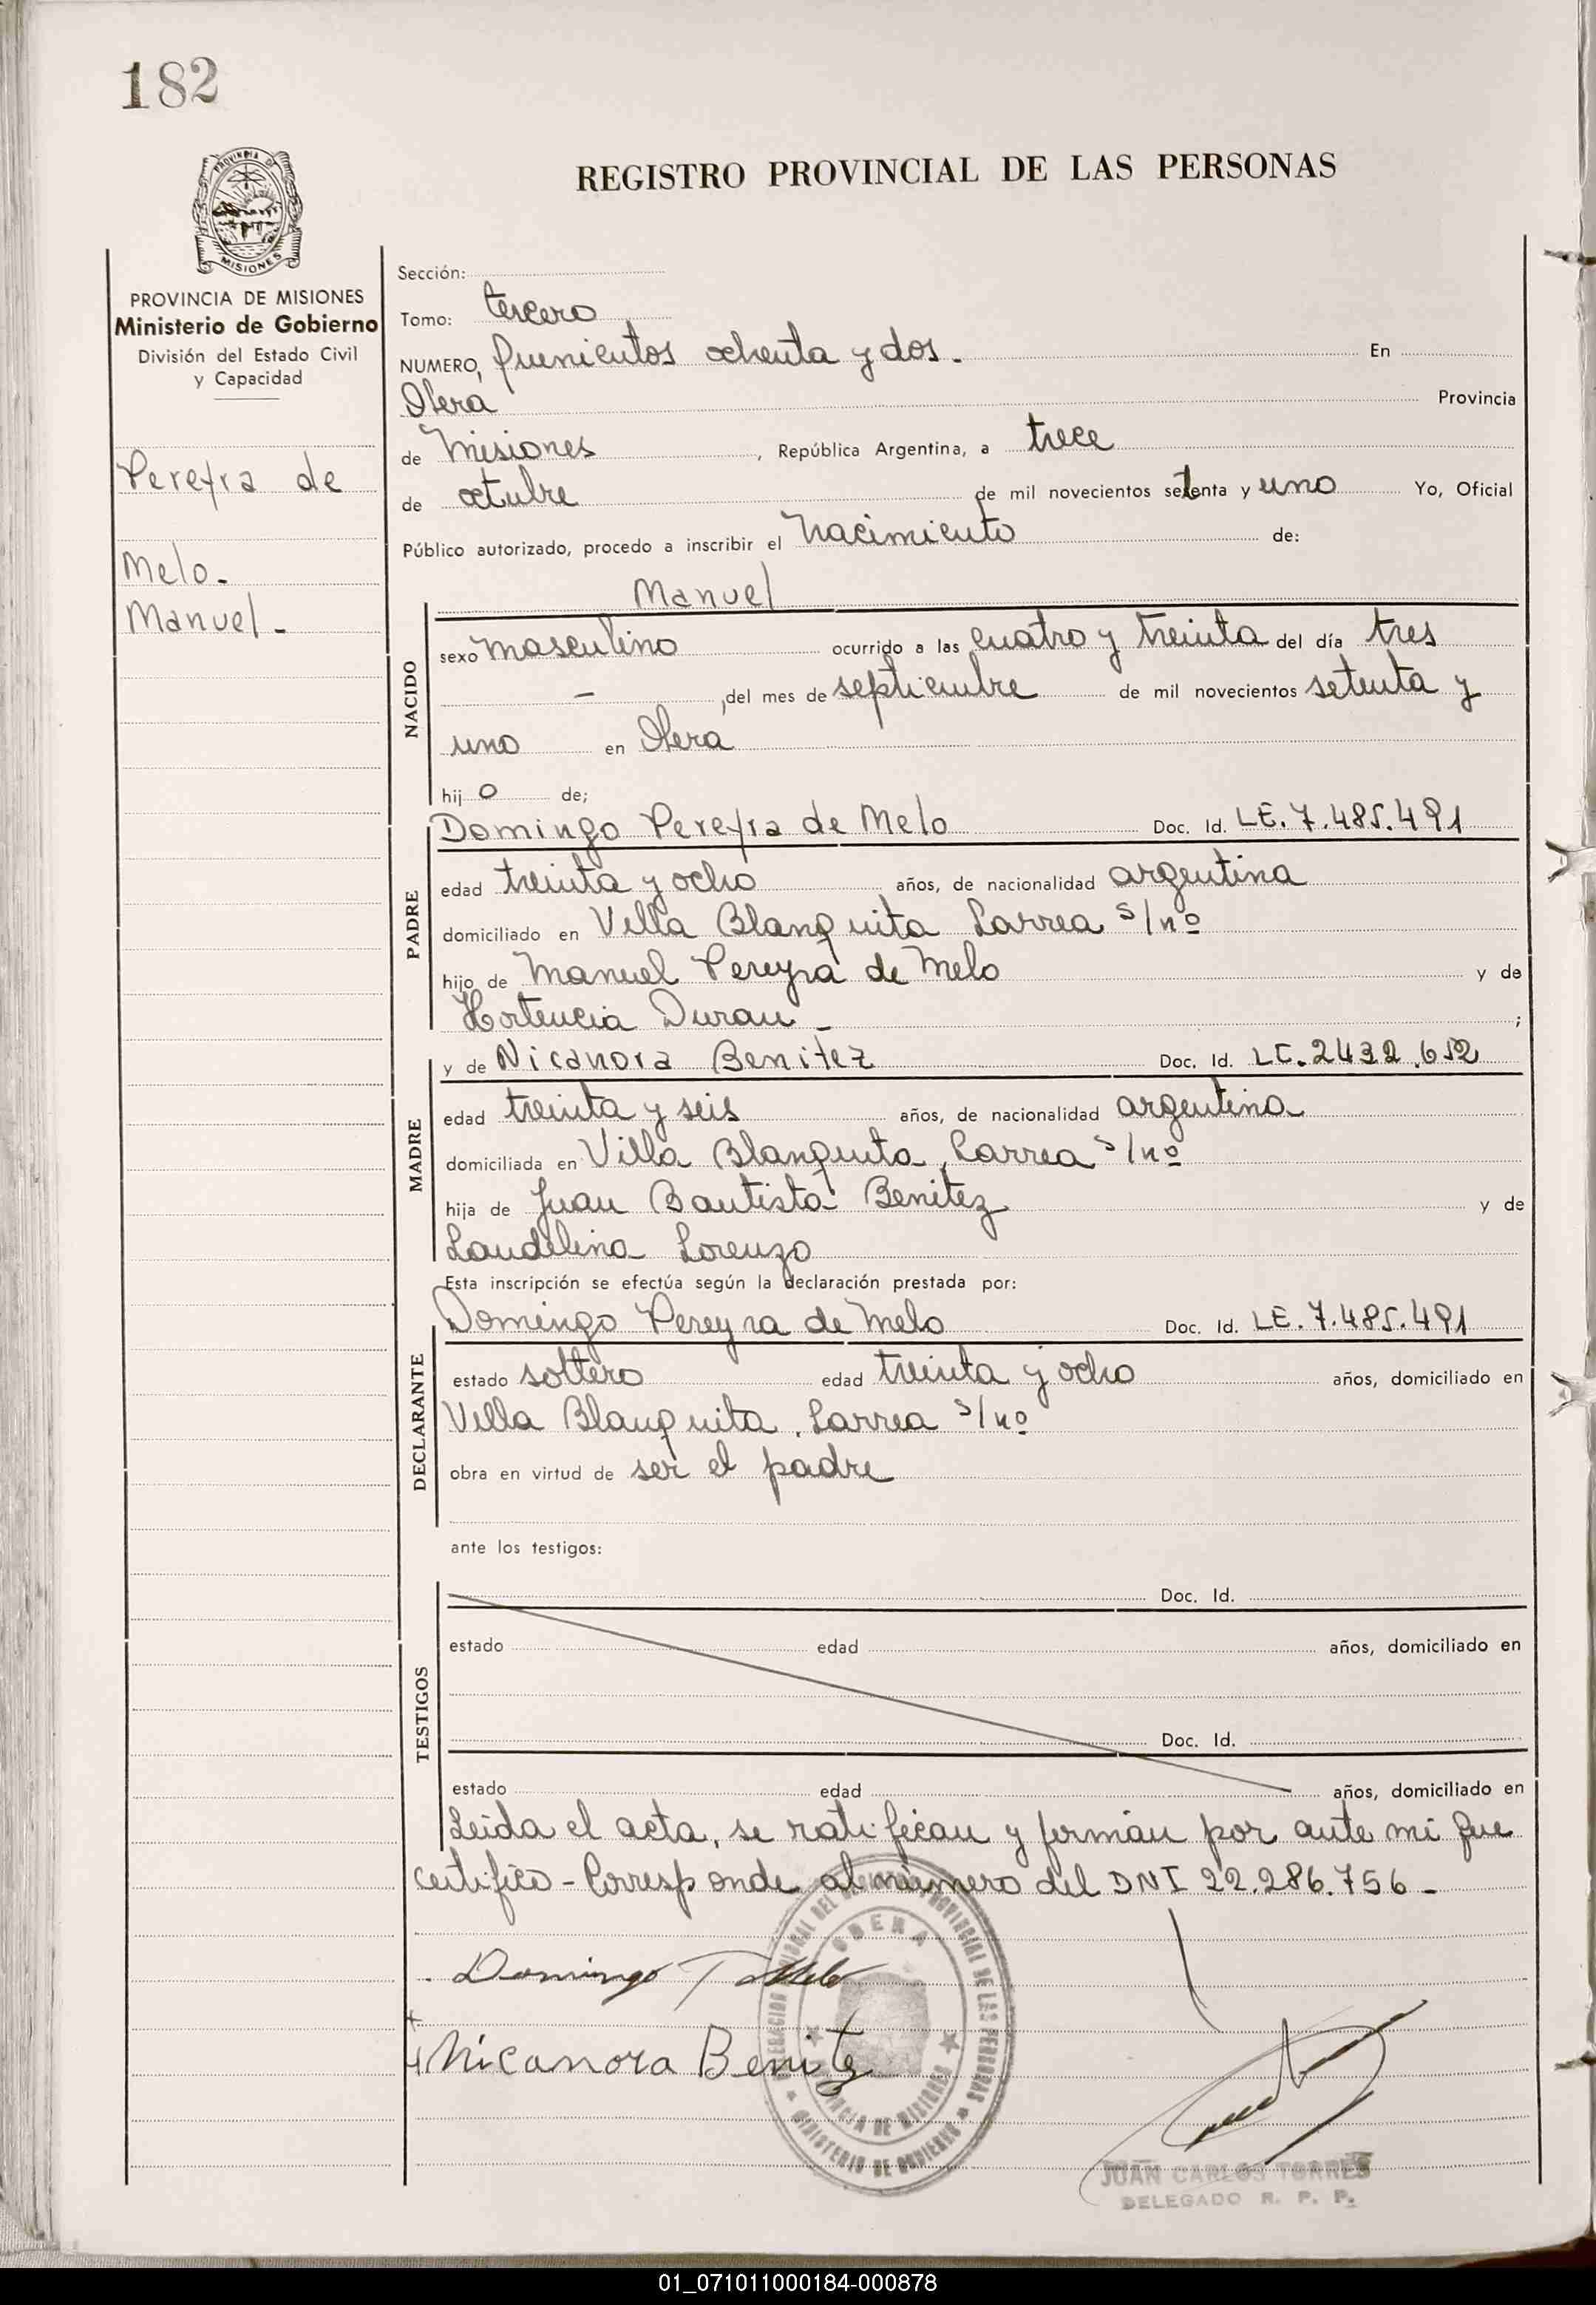 182
PROVINCIA DE
MISIONES
REGISTRO PROVINCIAL DE LAS PERSONAS
PROVINCIA DE MISIONES
Ministerio de Gobierno
División del Estado Civil
y Capacidad
Pereyra de
Melo.
Manuel -
Sección:
Tomo: tercero
NUMERO, Quinientos ochenta y dos. En
Oberá Provincia
de Misiones, República Argentina, a trece
de octubre de mil novecientos setenta y uno Yo, Oficial
Público autorizado, procedo a inscribir el Nacimiento de:
Manuel
NACIDO
sexo masculino ocurrido a las cuatro y treinta del día tres
- , del mes de septiembre de mil novecientos setenta y
uno en Oberá
hijo de;
PADRE
Domingo Pereyra de Melo Doc. Id. LE. 7.485.491
edad treinta y ocho años, de nacionalidad argentina
domiciliado en Villa Blanquita Larrea s/nº
hijo de Manuel Pereyra de Melo y de
Hortencia Duran - ;
MADRE
y de Nicanora Benitez Doc. Id. LC. 2432.652
edad treinta y seis años, de nacionalidad argentina
domiciliada en Villa Blanquita, Larrea s/nº
hija de Juan Bautista Benitez y de
Laudelina Lorenzo
Esta inscripción se efectúa según la declaración prestada por:
DECLARANTE
Domingo Pereyra de Melo Doc. Id. LE. 7.485.491
estado soltero edad treinta y ocho años, domiciliado en
Villa Blanquita, Larrea s/nº
obra en virtud de ser el padre
ante los testigos:
TESTIGOS
Doc. Id.
estado edad años, domiciliado en
Doc. Id.
estado edad años, domiciliado en
Leida el acta, se ratifican y firman por ante mi que
certifico - Corresponde al número del DNI 22.286.756 -
Domingo P d Melo
Nicanora Benitez
OBERA
PROVINCIA DE MISIONES
MINISTERIO DE GOBIERNO
JUAN CARLOS TORRES
DELEGADO R. P. P.
01_071011000184-000878